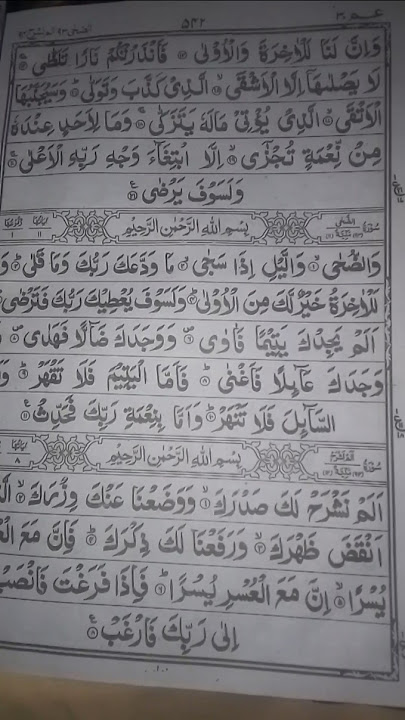 عم ٣٠
٥٤٢
الضحى ٩٣
وَاِنَّ لَنَا لَلْاٰخِرَةَ وَالْاُوْلٰى ۝ فَاَنْذَرْتُكُمْ نَارًا تَلَظّٰى ۝
لَا يَصْلٰىهَاۤ اِلَّا الْاَشْقَى ۝ الَّذِىْ كَذَّبَ وَتَوَلّٰى ۝ وَسَيُجَنَّبُهَا
الْاَتْقَى ۝ الَّذِىْ يُؤْتِىْ مَالَهٗ يَتَزَكّٰى ۝ وَمَا لِاَحَدٍ عِنْدَهٗ
مِنْ نِّعْمَةٍ تُجْزٰٓى ۝ اِلَّا ابْتِغَآءَ وَجْهِ رَبِّهِ الْاَعْلٰى ۝
وَلَسَوْفَ يَرْضٰى ۝
سُوْرَةُ الضُّحٰى بِسْمِ اللّٰهِ الرَّحْمٰنِ الرَّحِيْمِ
وَالضُّحٰى ۝ وَالَّيْلِ اِذَا سَجٰى ۝ مَا وَدَّعَكَ رَبُّكَ وَمَا قَلٰى ۝ وَ
لَلْاٰخِرَةُ خَيْرٌ لَّكَ مِنَ الْاُوْلٰى ۝ وَلَسَوْفَ يُعْطِيْكَ رَبُّكَ فَتَرْضٰى
اَلَمْ يَجِدْكَ يَتِيْمًا فَاٰوٰى ۝ وَوَجَدَكَ ضَآلًّا فَهَدٰى ۝
وَجَدَكَ عَآئِلًا فَاَغْنٰى ۝ فَاَمَّا الْيَتِيْمَ فَلَا تَقْهَرْ ۝
السَّآئِلَ فَلَا تَنْهَرْ ۝ وَاَمَّا بِنِعْمَةِ رَبِّكَ فَحَدِّثْ ۝
سُوْرَةُ اَلَمْ نَشْرَحْ بِسْمِ اللّٰهِ الرَّحْمٰنِ الرَّحِيْمِ
اَلَمْ نَشْرَحْ لَكَ صَدْرَكَ ۝ وَوَضَعْنَا عَنْكَ وِزْرَكَ ۝
اَنْقَضَ ظَهْرَكَ ۝ وَرَفَعْنَا لَكَ ذِكْرَكَ ۝ فَاِنَّ مَعَ
يُسْرًا ۝ اِنَّ مَعَ الْعُسْرِ يُسْرًا ۝ فَاِذَا فَرَغْتَ فَانْصَبْ
اِلٰى رَبِّكَ فَارْغَبْ ۝